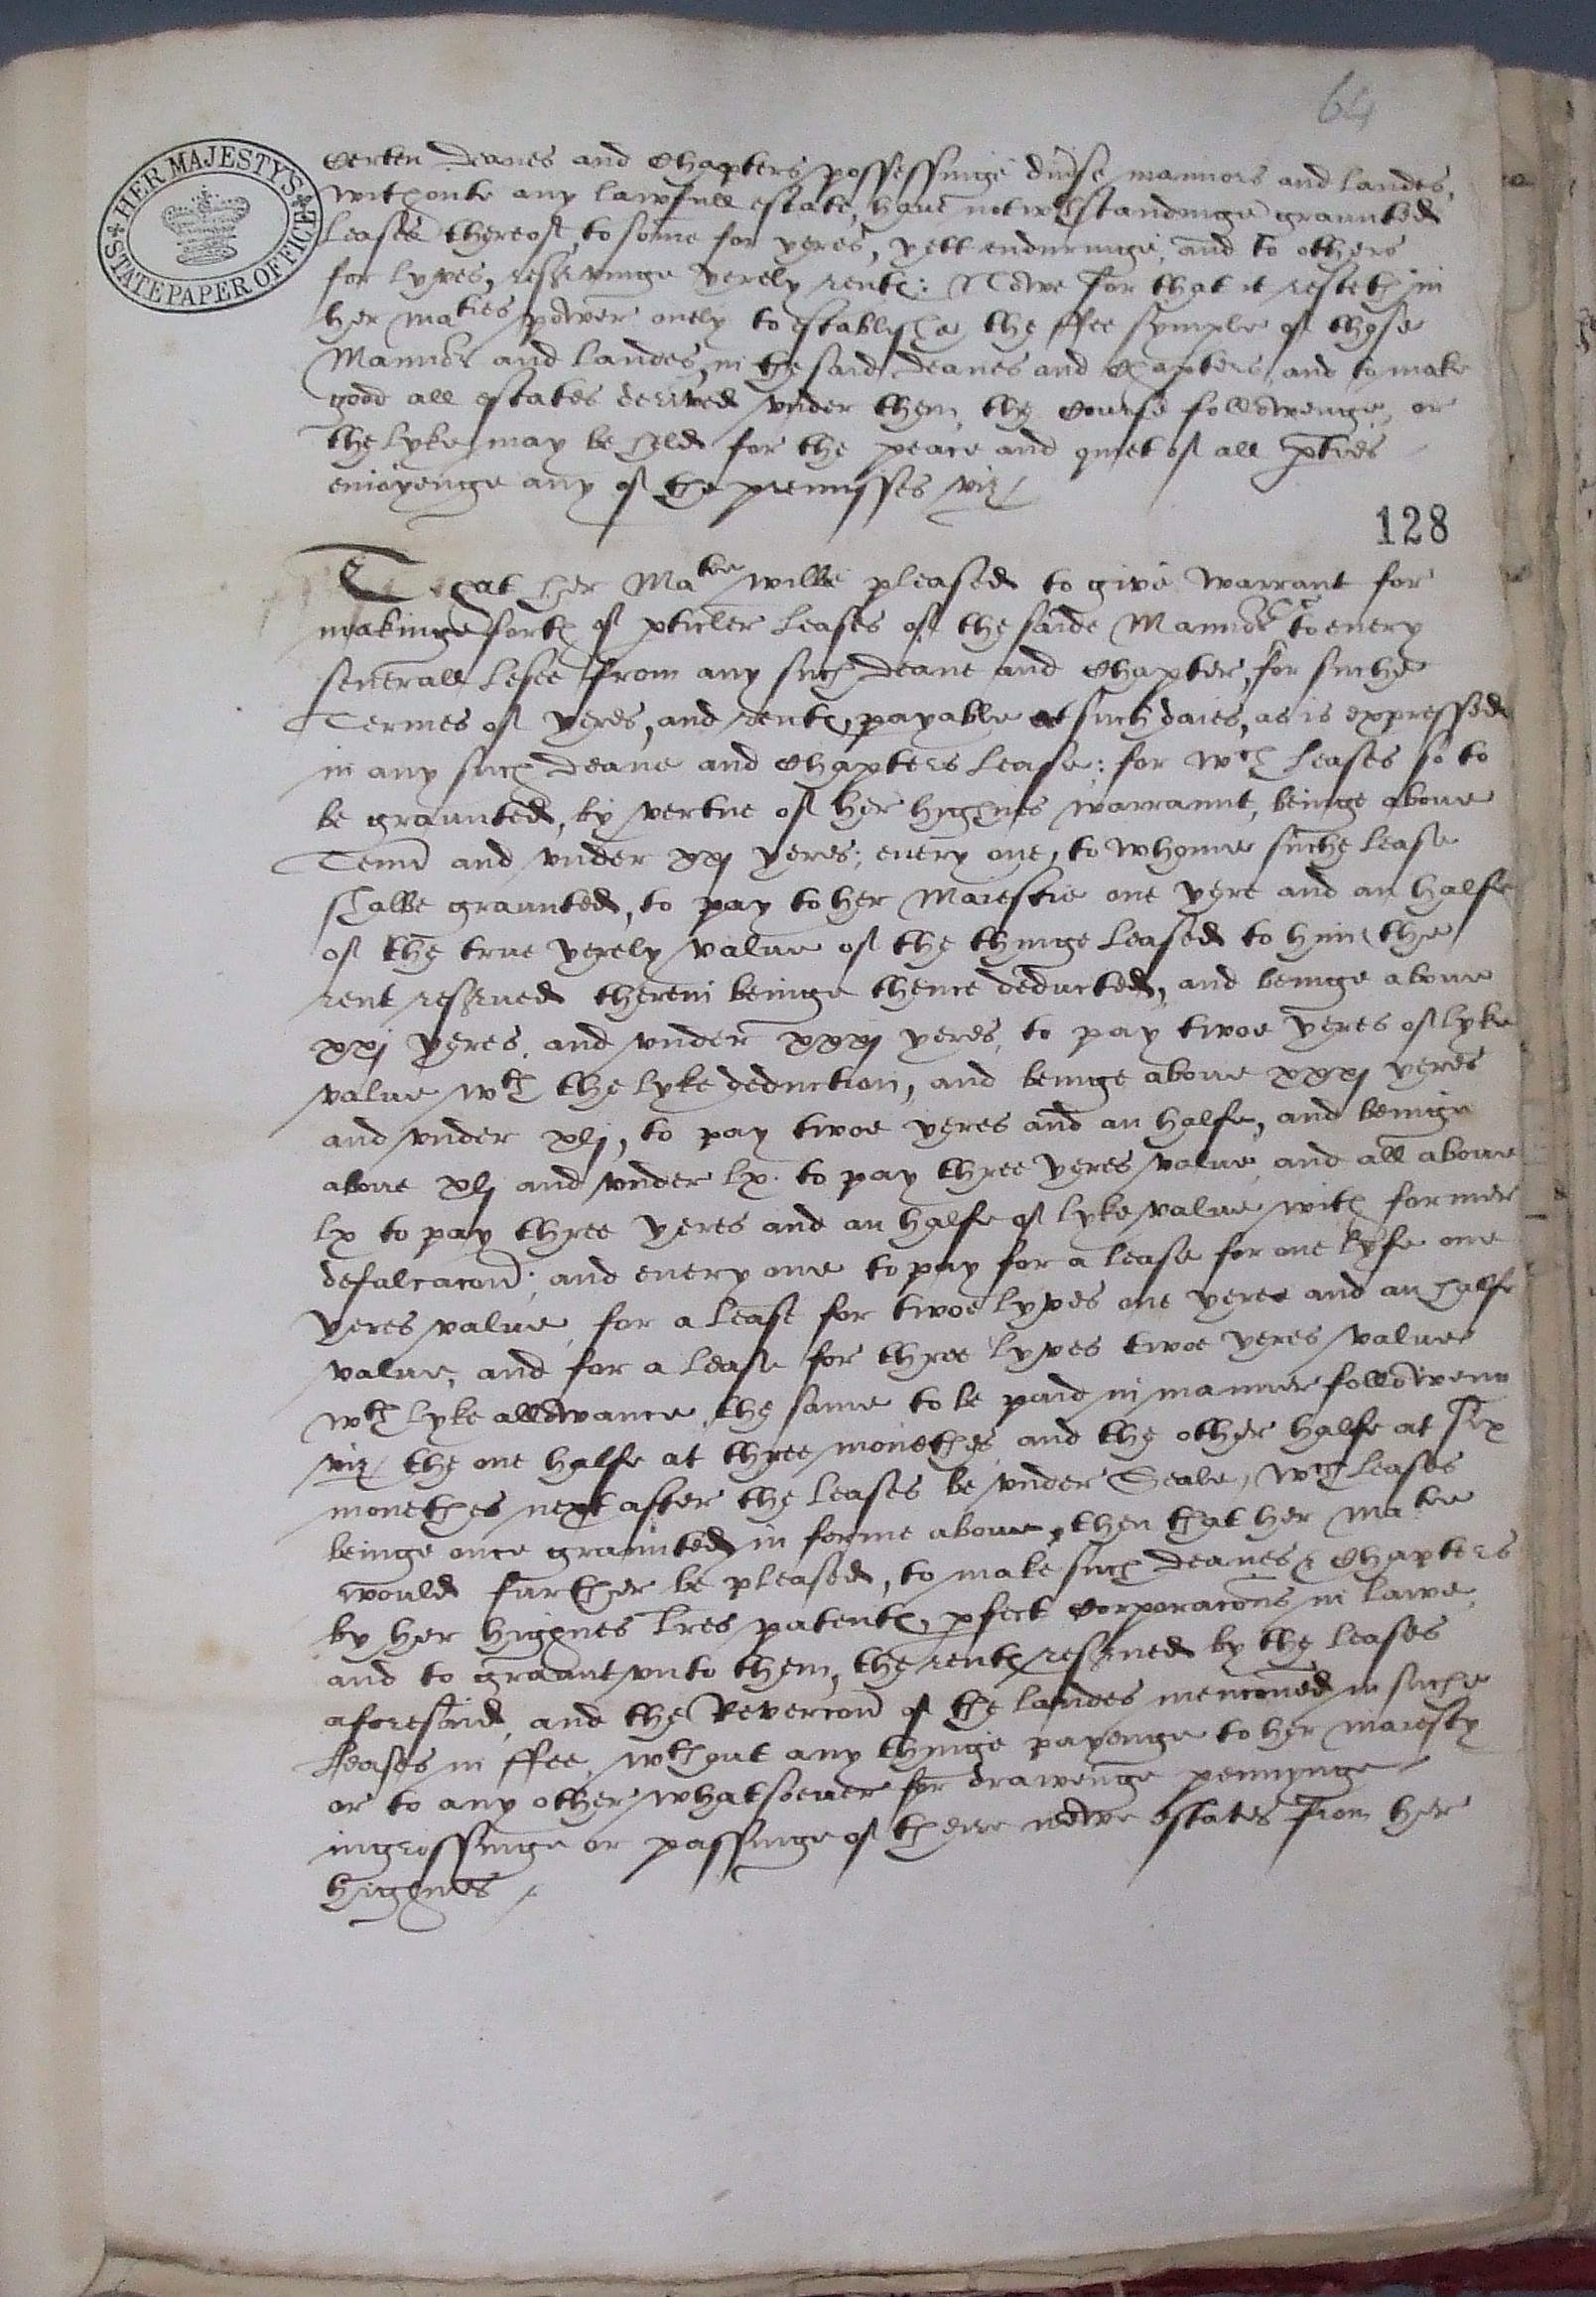 64
HER MAJESTY'S
STATE PAPER OFFICE
Certen Deanes and Chapters possessinge diu'se mannors and landes,
withoute any lawfull estate, haue notwthstandinge graunted
Leases thereof, to some for yeres, yett enduringe, and to others
for lyves, res'vinge yerely rent: Nowe for that it resteth in
her maties power onely to establyshe the ffee symple of those
Mannors and landes, in the said Deanes and Chapters, and to make
good all estates derived vnder them, the course followenge, or
the lyke may be held for the peace and quiet of all p'ties
enioyenge any of the premisses viz
128
That her Matie wilbe pleased to give warrant for
makinge forth of p'ticler Leases of the saide Mannors &c to euery
seuerall Lesee from any such Deane and Chapter, for suche
Termes of yeres, and rent, payable at such daies, as is expressed
in any such Deane and Chapters Lease: for wch Leases so to
be graunted, by vertue of her highnes warraunt, beinge aboue
Tenn and vnder xxj yeres; euery one, to whome suche lease
shalbe graunted, to pay to her Maiestie one yere and an halfe
of the true yerely value of the thinge leased to him, the
rent res'ued therein beinge thence deducted, and beinge aboue
xxj yeres, and vnder xxxj yeres, to pay twoe yeres of lyke
value wth the lyke deduction, and beinge aboue xxxj yeres
and vnder xlj, to pay twoe yeres and an halfe, and beinge
aboue xlj and vnder lx. to pay three yeres value, and all aboue
lx to pay three yeres and an halfe of lyke value with former
defalcacon; and euery one to pay for a lease for one lyfe one
yeres value, for a lease for twoe lyves one yere and an halfe
value, and for a lease for three lyves twoe yeres value
wth lyke allowance, the same to be paid in manner followenn
viz the one halfe at three monethes and the other halfe at six
monethes next after the leases be vnder Seale, wch leases
beinge once graunted in forme aboue, then that her Matie
would further be pleased, to make such Deanes & Chapters
by her highnes l'res patent, p'fect Corporacons in lawe,
and to graunt vnto them, the rent res'ued by the leases
aforesaid, and the Revercon of the landes mencioned in suche
leases in ffee, wthout any thinge payenge to her maiesty
or to any other whatsoeuer for drawenge pennynge
ingrossinge or passinge of theire newe estates from her
highnes